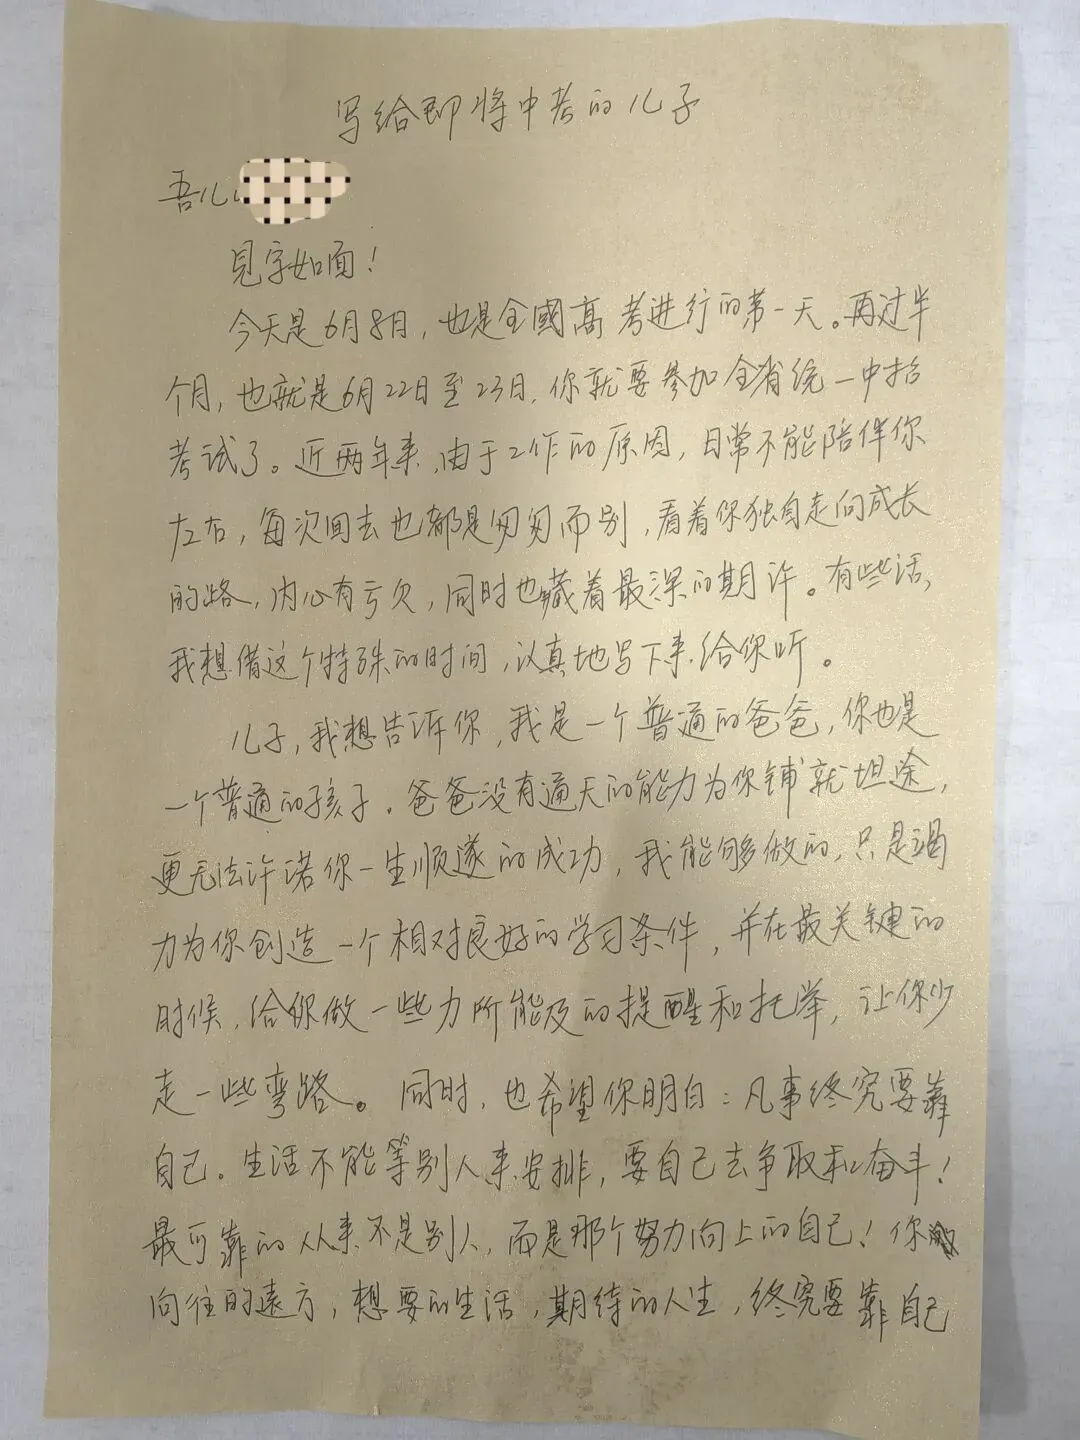 写给即将中考的儿子
吾儿
见字如面！
今天是6月8日，也是全國高考进行的第一天。再过半
个月，也就是6月22日至23日，你就要参加全省统一中招
考试了。近两年来，由于工作的原因，日常不能陪伴你
左右，每次回去也都是匆匆而别，看着你独自走向成长
的路，内心有亏欠，同时也藏着最深的期许。有些话，
我想借这个特殊的时间，认真地写下来给你听。
儿子，我想告诉你，我是一个普通的爸爸，你也是
一个普通的孩子。爸爸没有通天的能力为你铺就坦途，
更无法许诺你一生顺遂的成功，我能够做的，只是竭
力为你创造一个相对良好的学习条件，并在最关键的
时候，给你做一些力所能及的提醒和托举，让你少
走一些弯路。同时，也希望你明白：凡事终究要靠
自己。生活不能等别人来安排，要自己去争取和奋斗！
最可靠的从来不是别人，而是那个努力向上的自己！你
向往的远方，想要的生活，期待的人生，终究要靠自己